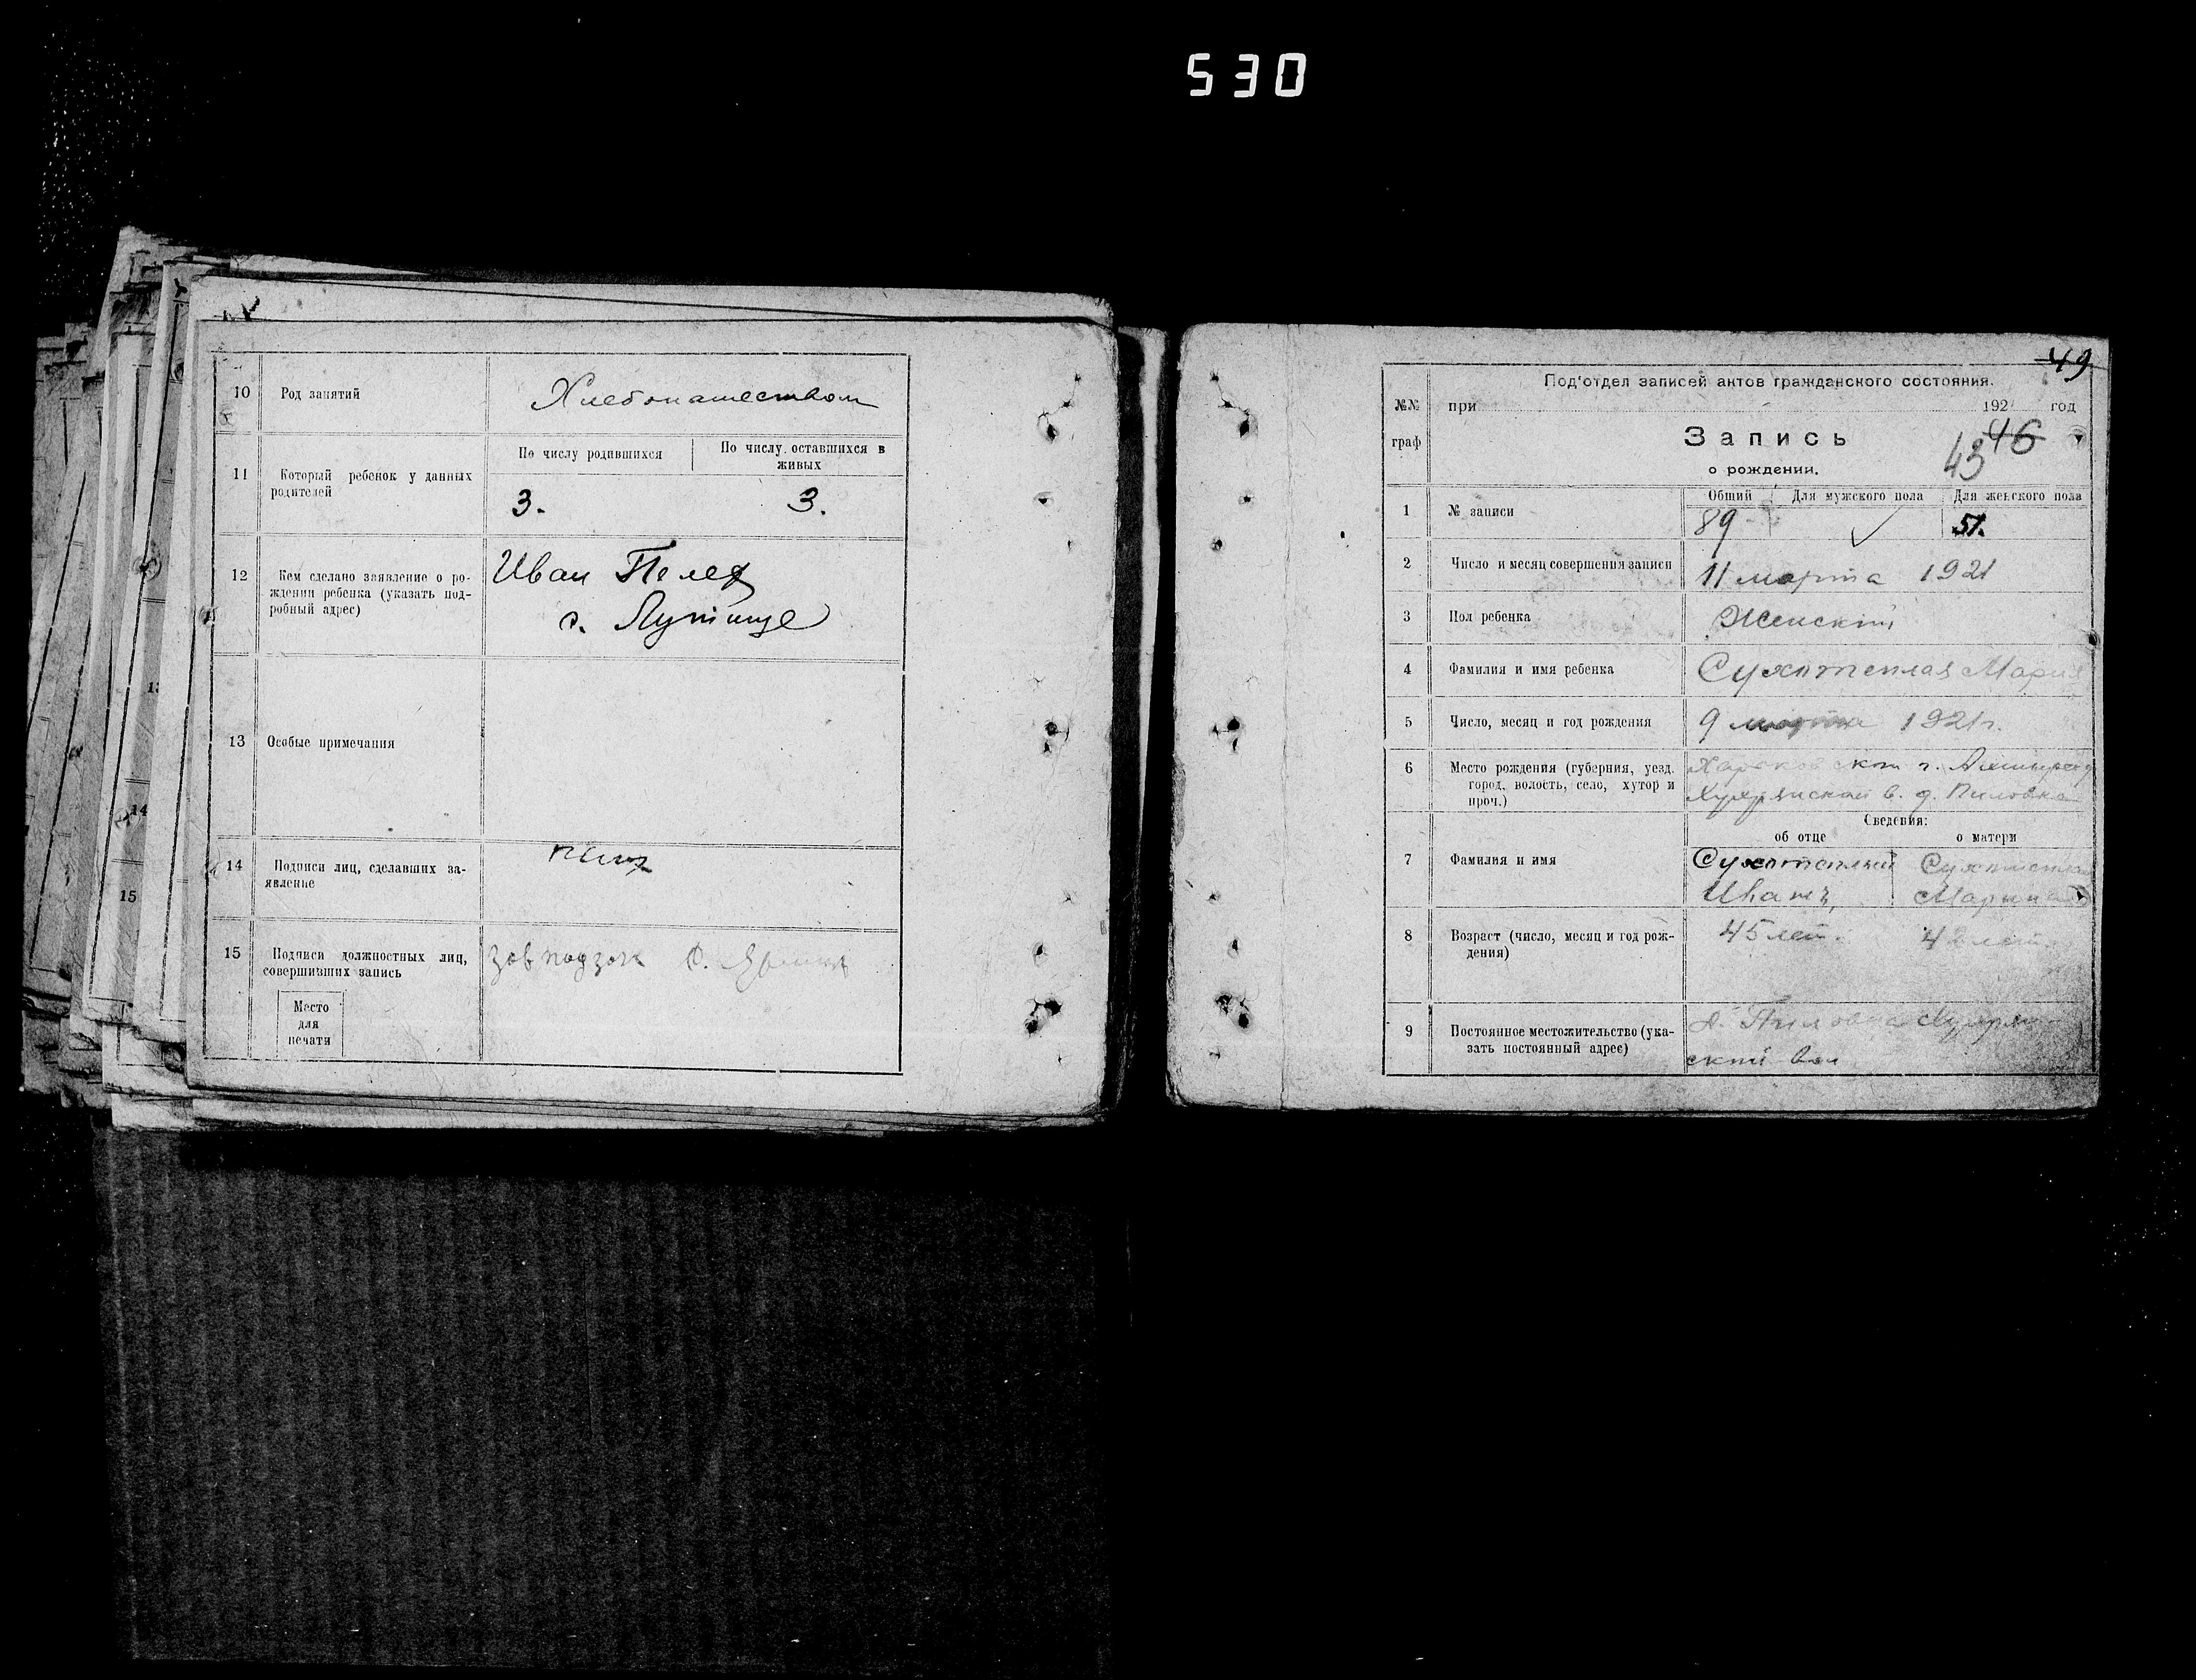 530
10 Род занятий Хлебопашеством
11 Который ребенок у данных
родителей
По числу родившихся По числу оставшихся в
живых
3. 3.
12 Кем сделано заявление о ро-
ждении ребенка (указать под-
робный адрес)
Иван
с. Лутище
13 Особые примечания
14 Подписи лиц, сделавших за-
явление
15 Подписи должностных лиц,
совершивших запись
Место
для
печати
14
15
49
Под'отдел записей актов гражданского состояния.
№№
граф
при 192 год
Запись
о рождении.
46
43
1 № записи
Общий Для мужского пола Для женского пола
89 51.
2 Число и месяц совершения записи 11 марта 1921
3 Пол ребенка Женский
4 Фамилия и имя ребенка Сухотеплая Мария
5 Число, месяц и год рождения 9 марта 1921 г.
6 Место рождения (губерния, уезд,
город, волость, село, хутор и
проч.)
Харьковской г.
в. д. Пиловка
Сведения:
об отце о матери
7 Фамилия и имя
Сухотеплый
Иванъ, Марина
8 Возраст (число, месяц и год рож-
дения)
45 лет. 42 лет.
9 Постоянное местожительство (ука-
зать постоянный адрес)
Пиловка
ской вол